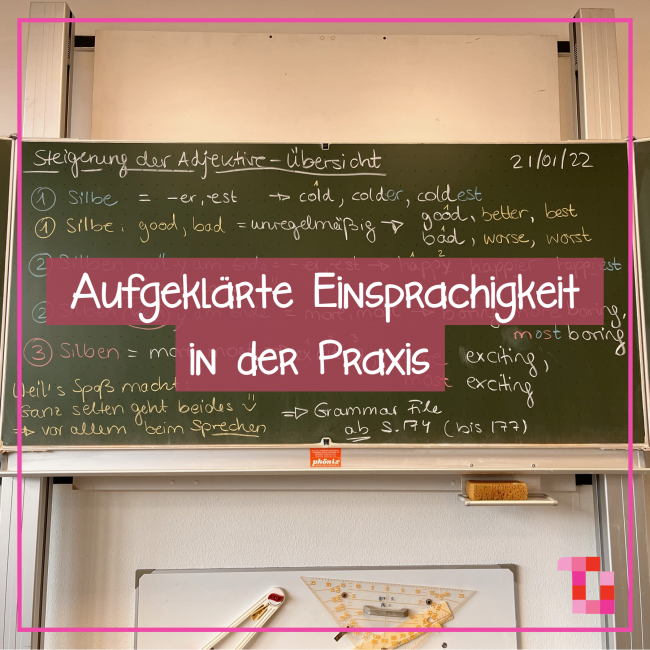 Steigerung der Adjektive - Übersicht 21/01/22
① Silbe = -er, -est → cold, colder, coldest
① Silbe, good, bad = unregelmäßig → good, better, best
bad, worse, worst
② Silben happy happier
Aufgeklärte Einsprachigkeit
② boring,
most boring
in der Praxis
③ Silben = exciting,
most exciting
Weil's Spaß macht:
Ganz selten geht beides
→ vor allem beim Sprechen
⇒ Grammar File
ab S. 174 (bis 177)
phönix